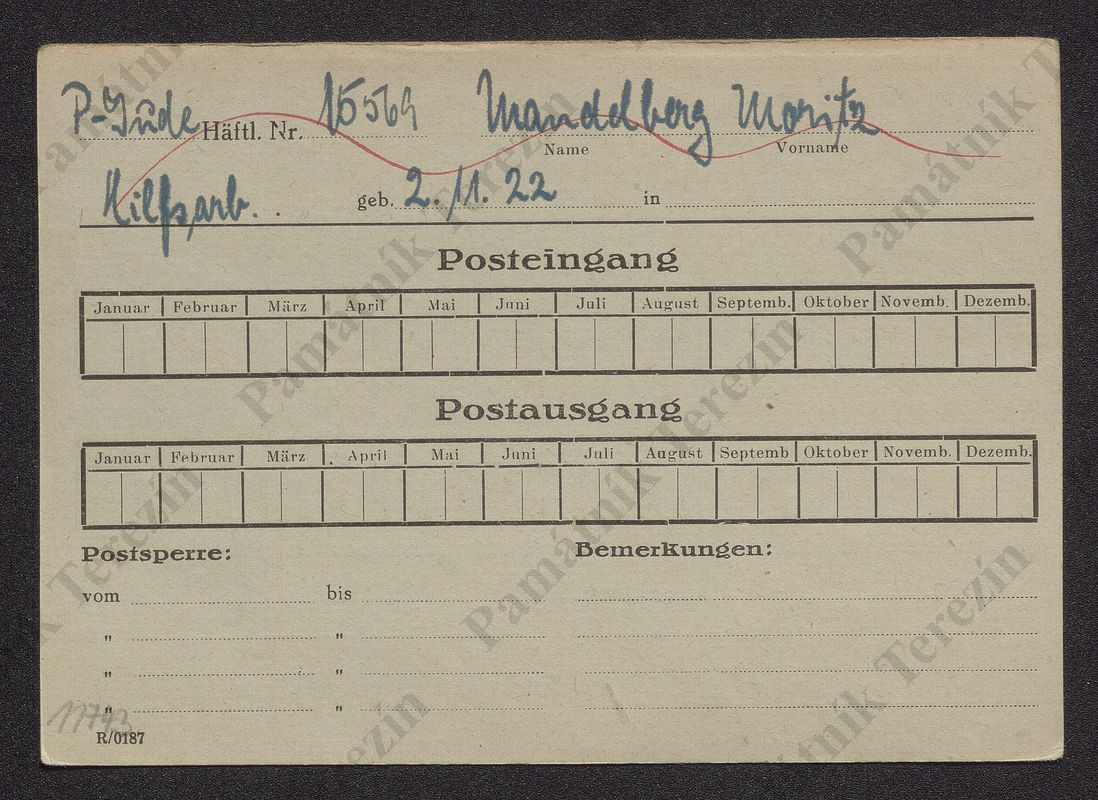 P-Jude Häftl. Nr. 15569 Mandelberg Moritz
Name Vorname
Hilfsarb. geb. 2./11. 22 in
Posteingang
Januar Februar März April Mai Juni Juli August Septemb. Oktober Novemb. Dezemb.
Postausgang
Januar Februar März April Mai Juni Juli August Septemb Oktober Novemb. Dezemb.
Postsperre: Bemerkungen:
vom bis
" "
" "
" "
11793
R/0187
Památník Terezín